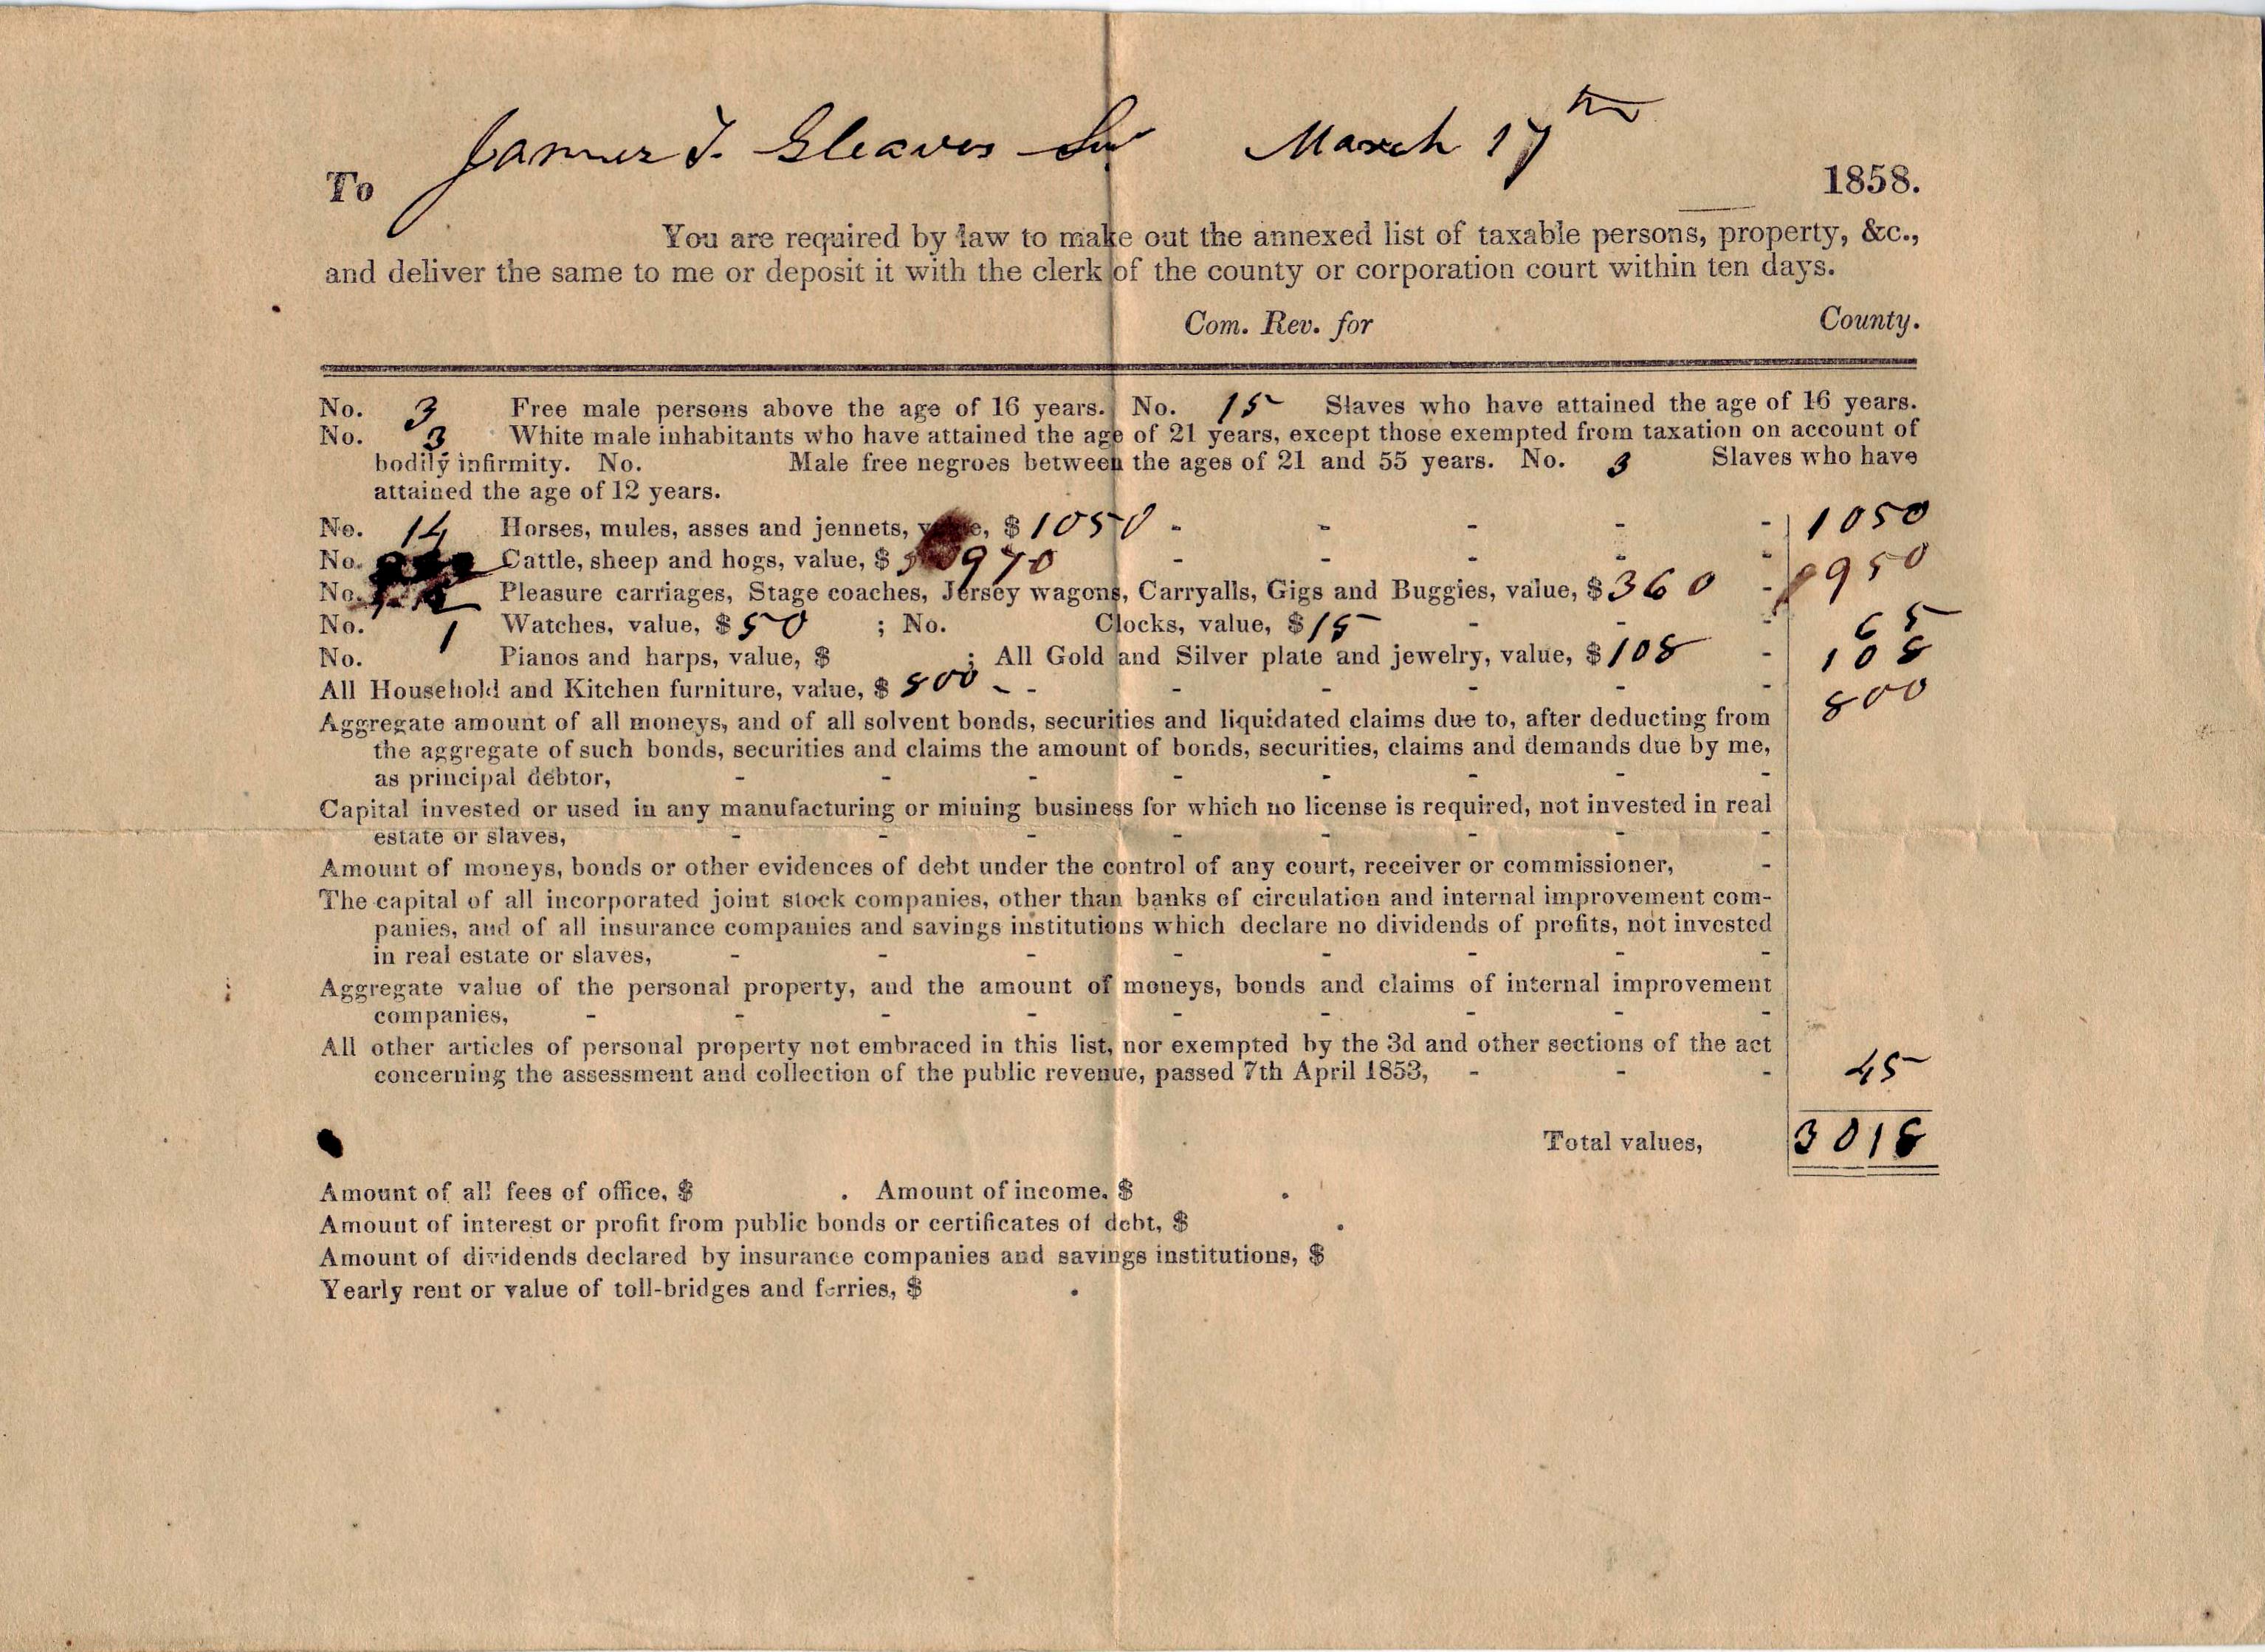 To James T. Gleaves Sir March 17th 1858.
You are required by law to make out the annexed list of taxable persons, property, &c.,
and deliver the same to me or deposit it with the clerk of the county or corporation court within ten days.
Com. Rev. for County.
No. 3 Free male persons above the age of 16 years. No. 15 Slaves who have attained the age of 16 years.
No. 3 White male inhabitants who have attained the age of 21 years, except those exempted from taxation on account of
bodily infirmity. No. Male free negroes between the ages of 21 and 55 years. No. 3 Slaves who have
attained the age of 12 years.
No. 14 Horses, mules, asses and jennets, value, $ 1050 - - - - - 1050
No. Cattle, sheep and hogs, value, $ 970 - - - - -
No. Pleasure carriages, Stage coaches, Jersey wagons, Carryalls, Gigs and Buggies, value, $ 360 - 950
No. 1 Watches, value, $ 50 ; No. Clocks, value, $ 15 - - - 65
No. Pianos and harps, value, $ ; All Gold and Silver plate and jewelry, value, $ 108 - 108
All Household and Kitchen furniture, value, $ 800 - - - - - - - 800
Aggregate amount of all moneys, and of all solvent bonds, securities and liquidated claims due to, after deducting from
the aggregate of such bonds, securities and claims the amount of bonds, securities, claims and demands due by me,
as principal debtor, - - - - - - - -
Capital invested or used in any manufacturing or mining business for which no license is required, not invested in real
estate or slaves, - - - - - - - -
Amount of moneys, bonds or other evidences of debt under the control of any court, receiver or commissioner, -
The capital of all incorporated joint stock companies, other than banks of circulation and internal improvement com-
panies, and of all insurance companies and savings institutions which declare no dividends of profits, not invested
in real estate or slaves, - - - - - - - -
Aggregate value of the personal property, and the amount of moneys, bonds and claims of internal improvement
companies, - - - - - - - - -
All other articles of personal property not embraced in this list, nor exempted by the 3d and other sections of the act
concerning the assessment and collection of the public revenue, passed 7th April 1853, - - - 45
Total values, 3018
Amount of all fees of office, $ . Amount of income, $ .
Amount of interest or profit from public bonds or certificates of debt, $ .
Amount of dividends declared by insurance companies and savings institutions, $
Yearly rent or value of toll-bridges and ferries, $ .